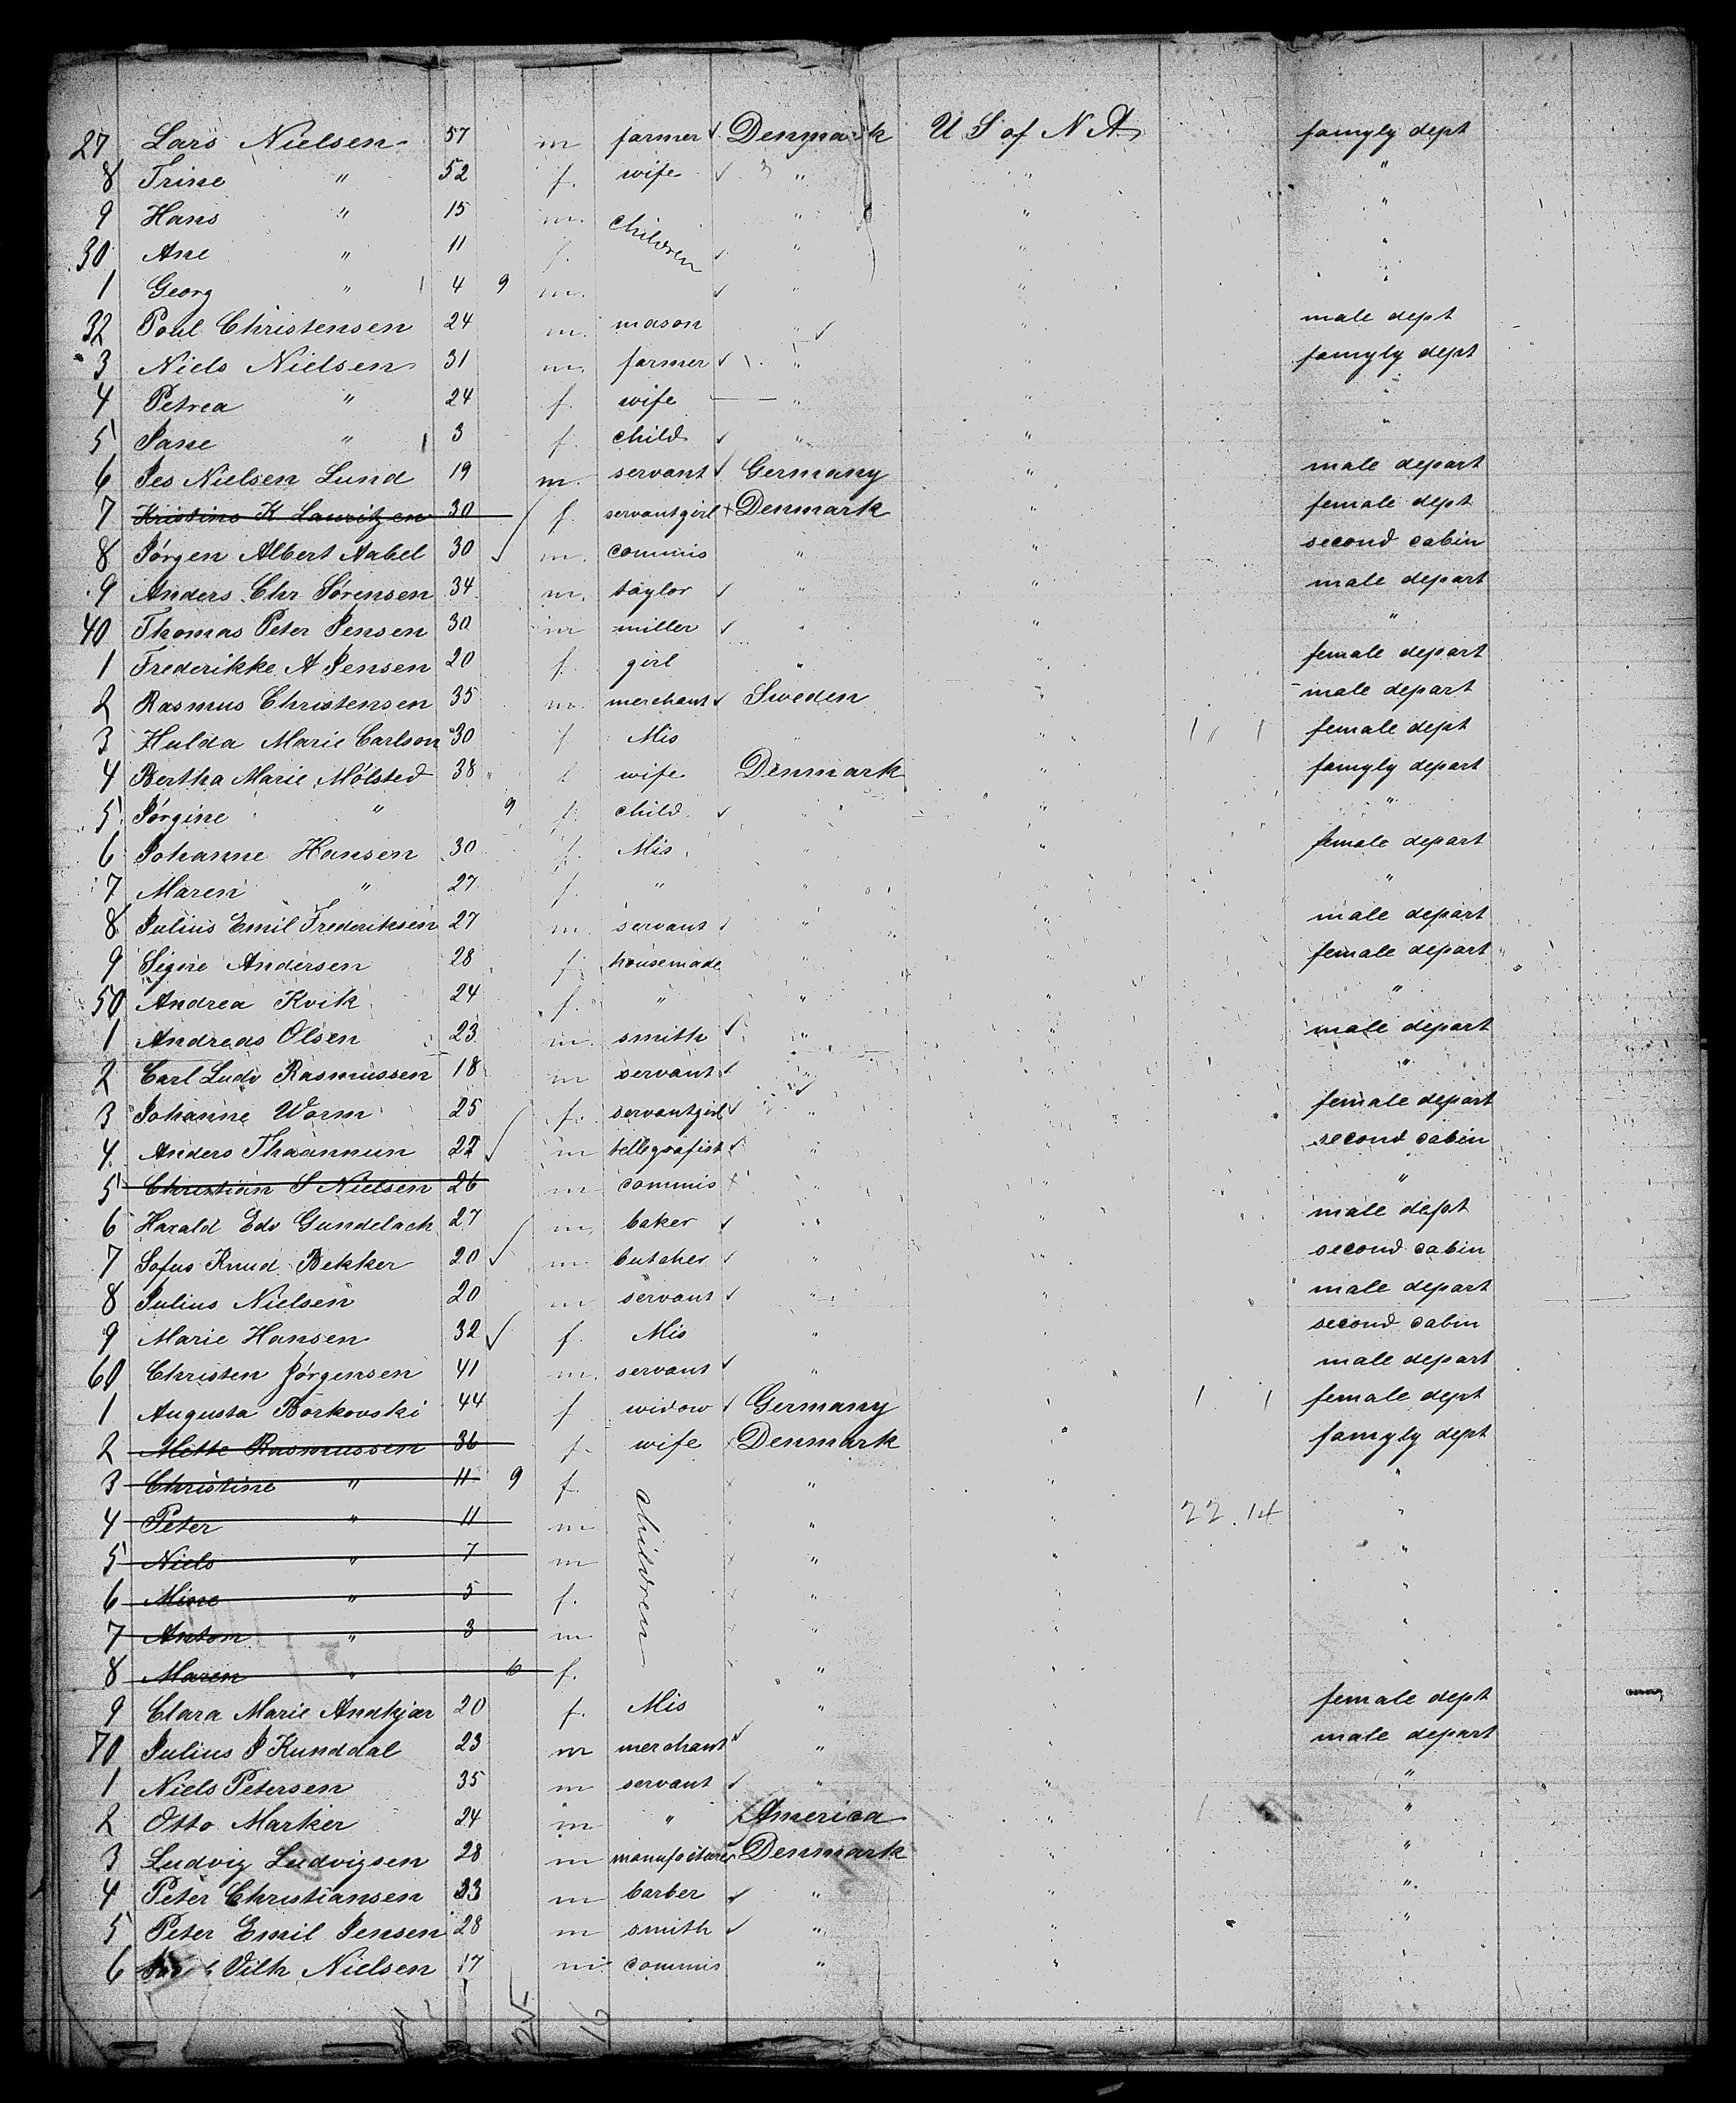 27 Lars Nielsen 57 m farmer Denmark U S of N A famyly dept
8 Trine " 52 f. wife " " "
9 Hans " 15 m. children " " "
30 Ane " 11 f. " " "
1 Georg " 4 9 m. " " "
32 Poul Christensen 24 m. mason " " male dept
3 Niels Nielsen 31 m. farmer " " famyly dept
4 Petrea " 24 f. wife " " "
5 Jane " 3 f. child " " "
6 Jes Nielsen Lund 19 m. servant Germany " male depart
7 Kristine K Lauritzen 30 f. servantgirl Denmark " female dept
8 Jörgen Albert Aabel 30 m. commis " " second cabin
9 Anders Chr Sörensen 34 m. taylor " " male depart
40 Thomas Peter Jensen 30 m miller " " "
1 Frederikke A Jensen 20 f. girl " " female depart
2 Rasmus Christensen 35 m. merchant Sweden " male depart
3 Hulda Marie Carlson 30 f Mis " " 1 " 1 female dept
4 Bertha Marie Mölsted 38 f wife Denmark " famyly depart
5 Jörgine " 9 f. child " " "
6 Johanne Hansen 30 f. Mis " " female depart
7 Maren " 27 f. " " " "
8 Julius Emil Frederiksen 27 m. servant " " male depart
9 Signe Andersen 28 f. housemade " " female depart
50 Andrea Kvik 24 f. " " " "
1 Andreas Olsen 23 m. smith " " male depart
2 Carl Ludv Rasmussen 18 m servant " " "
3 Johanne Worm 25 f. servantgirl " " female depart
4 Anders Thaannun 22 m tellegrafist " " second cabin
5 Christian S Nielsen 26 m commis " " "
6 Harald Edv Gundelach 27 m. baker " " male dept
7 Sofus Knud Bekker 20 m. butcher " " second cabin
8 Julius Nielsen 20 m servant " " male depart
9 Marie Hansen 32 f. Mis " " second cabin
60 Christen Jörgensen 41 m. servant " " male depart
1 Augusta Borkovski 44 f widow Germany " 1 1 female dept
2 Mette Rasmussen 36 f. wife Denmark " famyly dept
3 Christine " 11 9 f. children " " "
4 Peter " 11 m " " 22.14 "
5 Niels " 7 m " " "
6 Mine " 5 f. " " "
7 Anton " 3 m " " "
8 Maren " 6 f. " " "
9 Clara Marie Andkjær 20 f. Mis " " female dept
70 Julius J Kunddal 23 m merchant " " male depart
1 Niels Petersen 35 m servant " " "
2 Otto Marker 24 m " America " "
3 Ludvig Ludvigsen 28 m manufacturer Denmark " "
4 Peter Christiansen 33 m barber " " "
5 Peter Emil Jensen 28 m smith " " "
6 Vilh Nielsen 17 m commis " " "
25 16